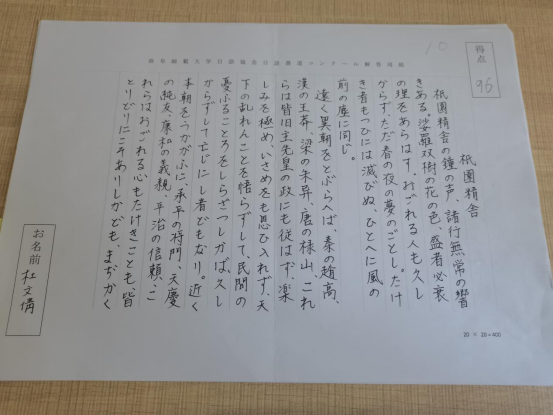 得点
96
10
祇園精舎
祇園精舎の鐘の声、諸行無常の響
きある。娑羅双樹の花の色、盛者必衰
の理をあらはす。おごれる人も久し
からずただ春の夜の夢のごとし。たけ
き者もつひには滅びぬ、ひとへに風の
前の塵に同じ。
遠く異朝をとぶらへば、秦の趙高、
漢の王莽、梁の朱异、唐の禄山、これ
らは皆旧主先皇の政にも従はず、楽
しみを極め、いさめをも思ひ入れず、天
下の乱れんことを悟らずして、民間の
憂ふるところをしらざつしかば、久し
からずして亡じにし者どもなり。近く
本朝をうかがふに、承平の将門、天慶
の純友、康和の義親、平治の信頼、こ
れらはおごれる心もたけきことも、皆
とりどりにこそありしかども、まぢかく
お名前 杜文溝
20 × 20=400